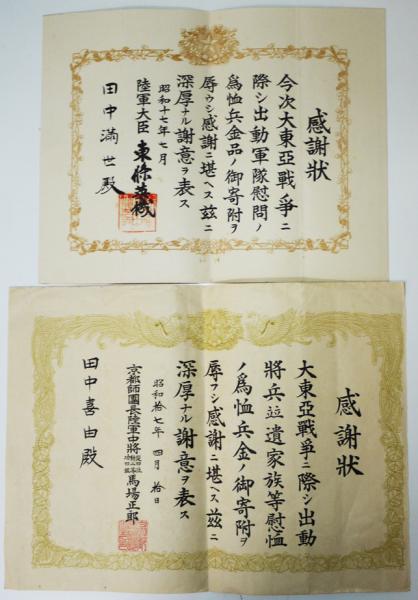 感謝狀
今次大東亞戰爭ニ
際シ出動軍隊慰問ノ
爲恤兵金品ノ御寄附ヲ
辱ウシ感謝ニ堪ヘス玆ニ
深厚ナル謝意ヲ表ス
昭和十七年七月
陸軍大臣 東條英機
田中滿世殿
感謝狀
大東亞戰爭ニ際シ出動
將兵竝遺家族等慰恤
ノ爲恤兵金ノ御寄附ヲ
辱フシ感謝ニ堪ヘス玆ニ
深厚ナル謝意ヲ表ス
昭和拾七年 四月 拾日
京都師團長陸軍中將 馬場正郎
田中喜由殿